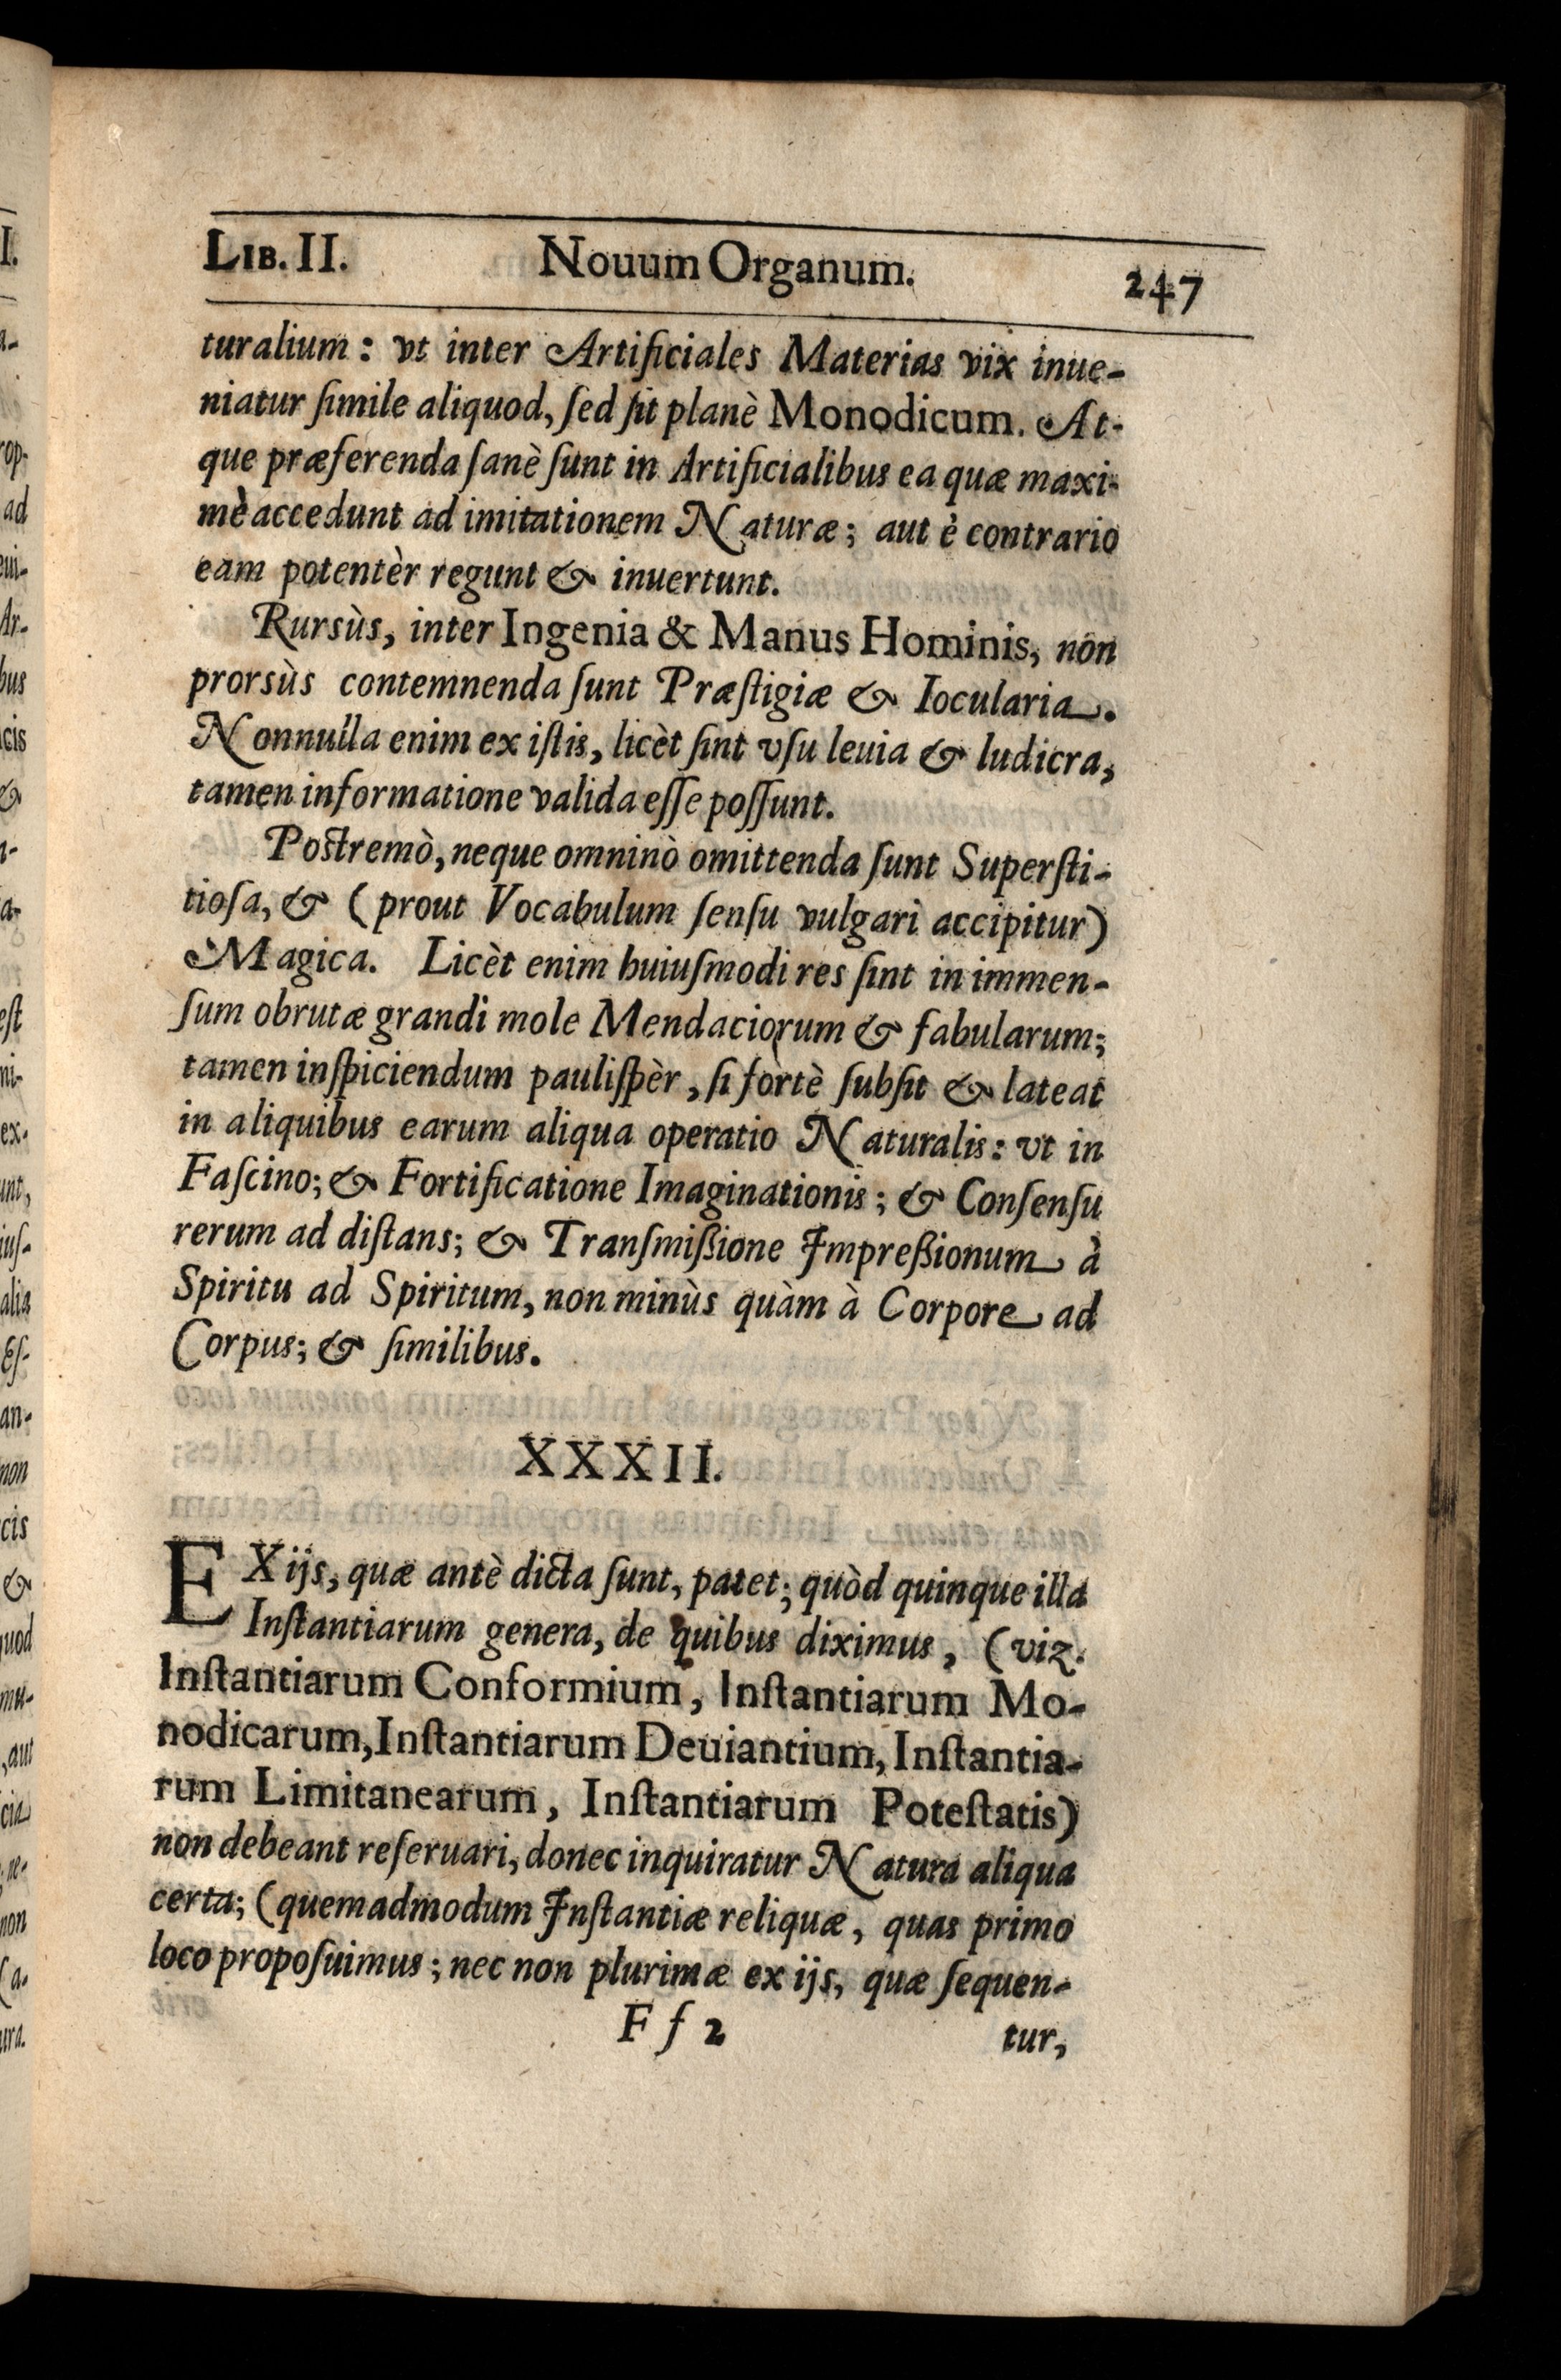 LIB. II. Nouum Organum. 247
turalium: vt inter Artificiales Materias vix inue-
niatur ſimile aliquod, ſed ſit planè Monodicum. At-
que præferenda ſanè ſunt in Artificialibus ea quæ maxi-
mè accedunt ad imitationem Naturæ; aut è contrario
eam potentèr regunt & inuertunt.
Rursùs, inter Ingenia & Manus Hominis, non
prorsùs contemnenda ſunt Præſtigiæ & Iocularia.
Nonnulla enim ex iſtis, licèt ſint vſu leuia & ludicra,
tamen informatione valida eſſe poſſunt.
Postremò, neque omninò omittenda ſunt Superſti-
tioſa, & (prout Vocabulum ſenſu vulgari accipitur)
Magica. Licèt enim huiuſmodi res ſint in immen-
ſum obrutæ grandi mole Mendaciorum & fabularum;
tamen inſpiciendum pauliſpèr, ſi fortè ſubſit & lateat
in aliquibus earum aliqua operatio Naturalis: vt in
Faſcino; & Fortificatione Imaginationis; & Conſenſu
rerum ad diſtans; & Tranſmißione Impreßionum à
Spiritu ad Spiritum, non minùs quàm à Corpore ad
Corpus; & ſimilibus.
XXXII.
EX ijs, quæ antè dicta ſunt, patet; quòd quinque illa
Inſtantiarum genera, de quibus diximus, (viz.
Inſtantiarum Conformium, Inſtantiarum Mo-
nodicarum, Inſtantiarum Deuiantium, Inſtantia-
rum Limitanearum, Inſtantiarum Poteſtatis)
non debeant reſeruari, donec inquiratur Natura aliqua
certa; (quemadmodum Inſtantiæ reliquæ, quas primo
loco propoſuimus; nec non plurimæ ex ijs, quæ ſequen-
F f 2 tur,